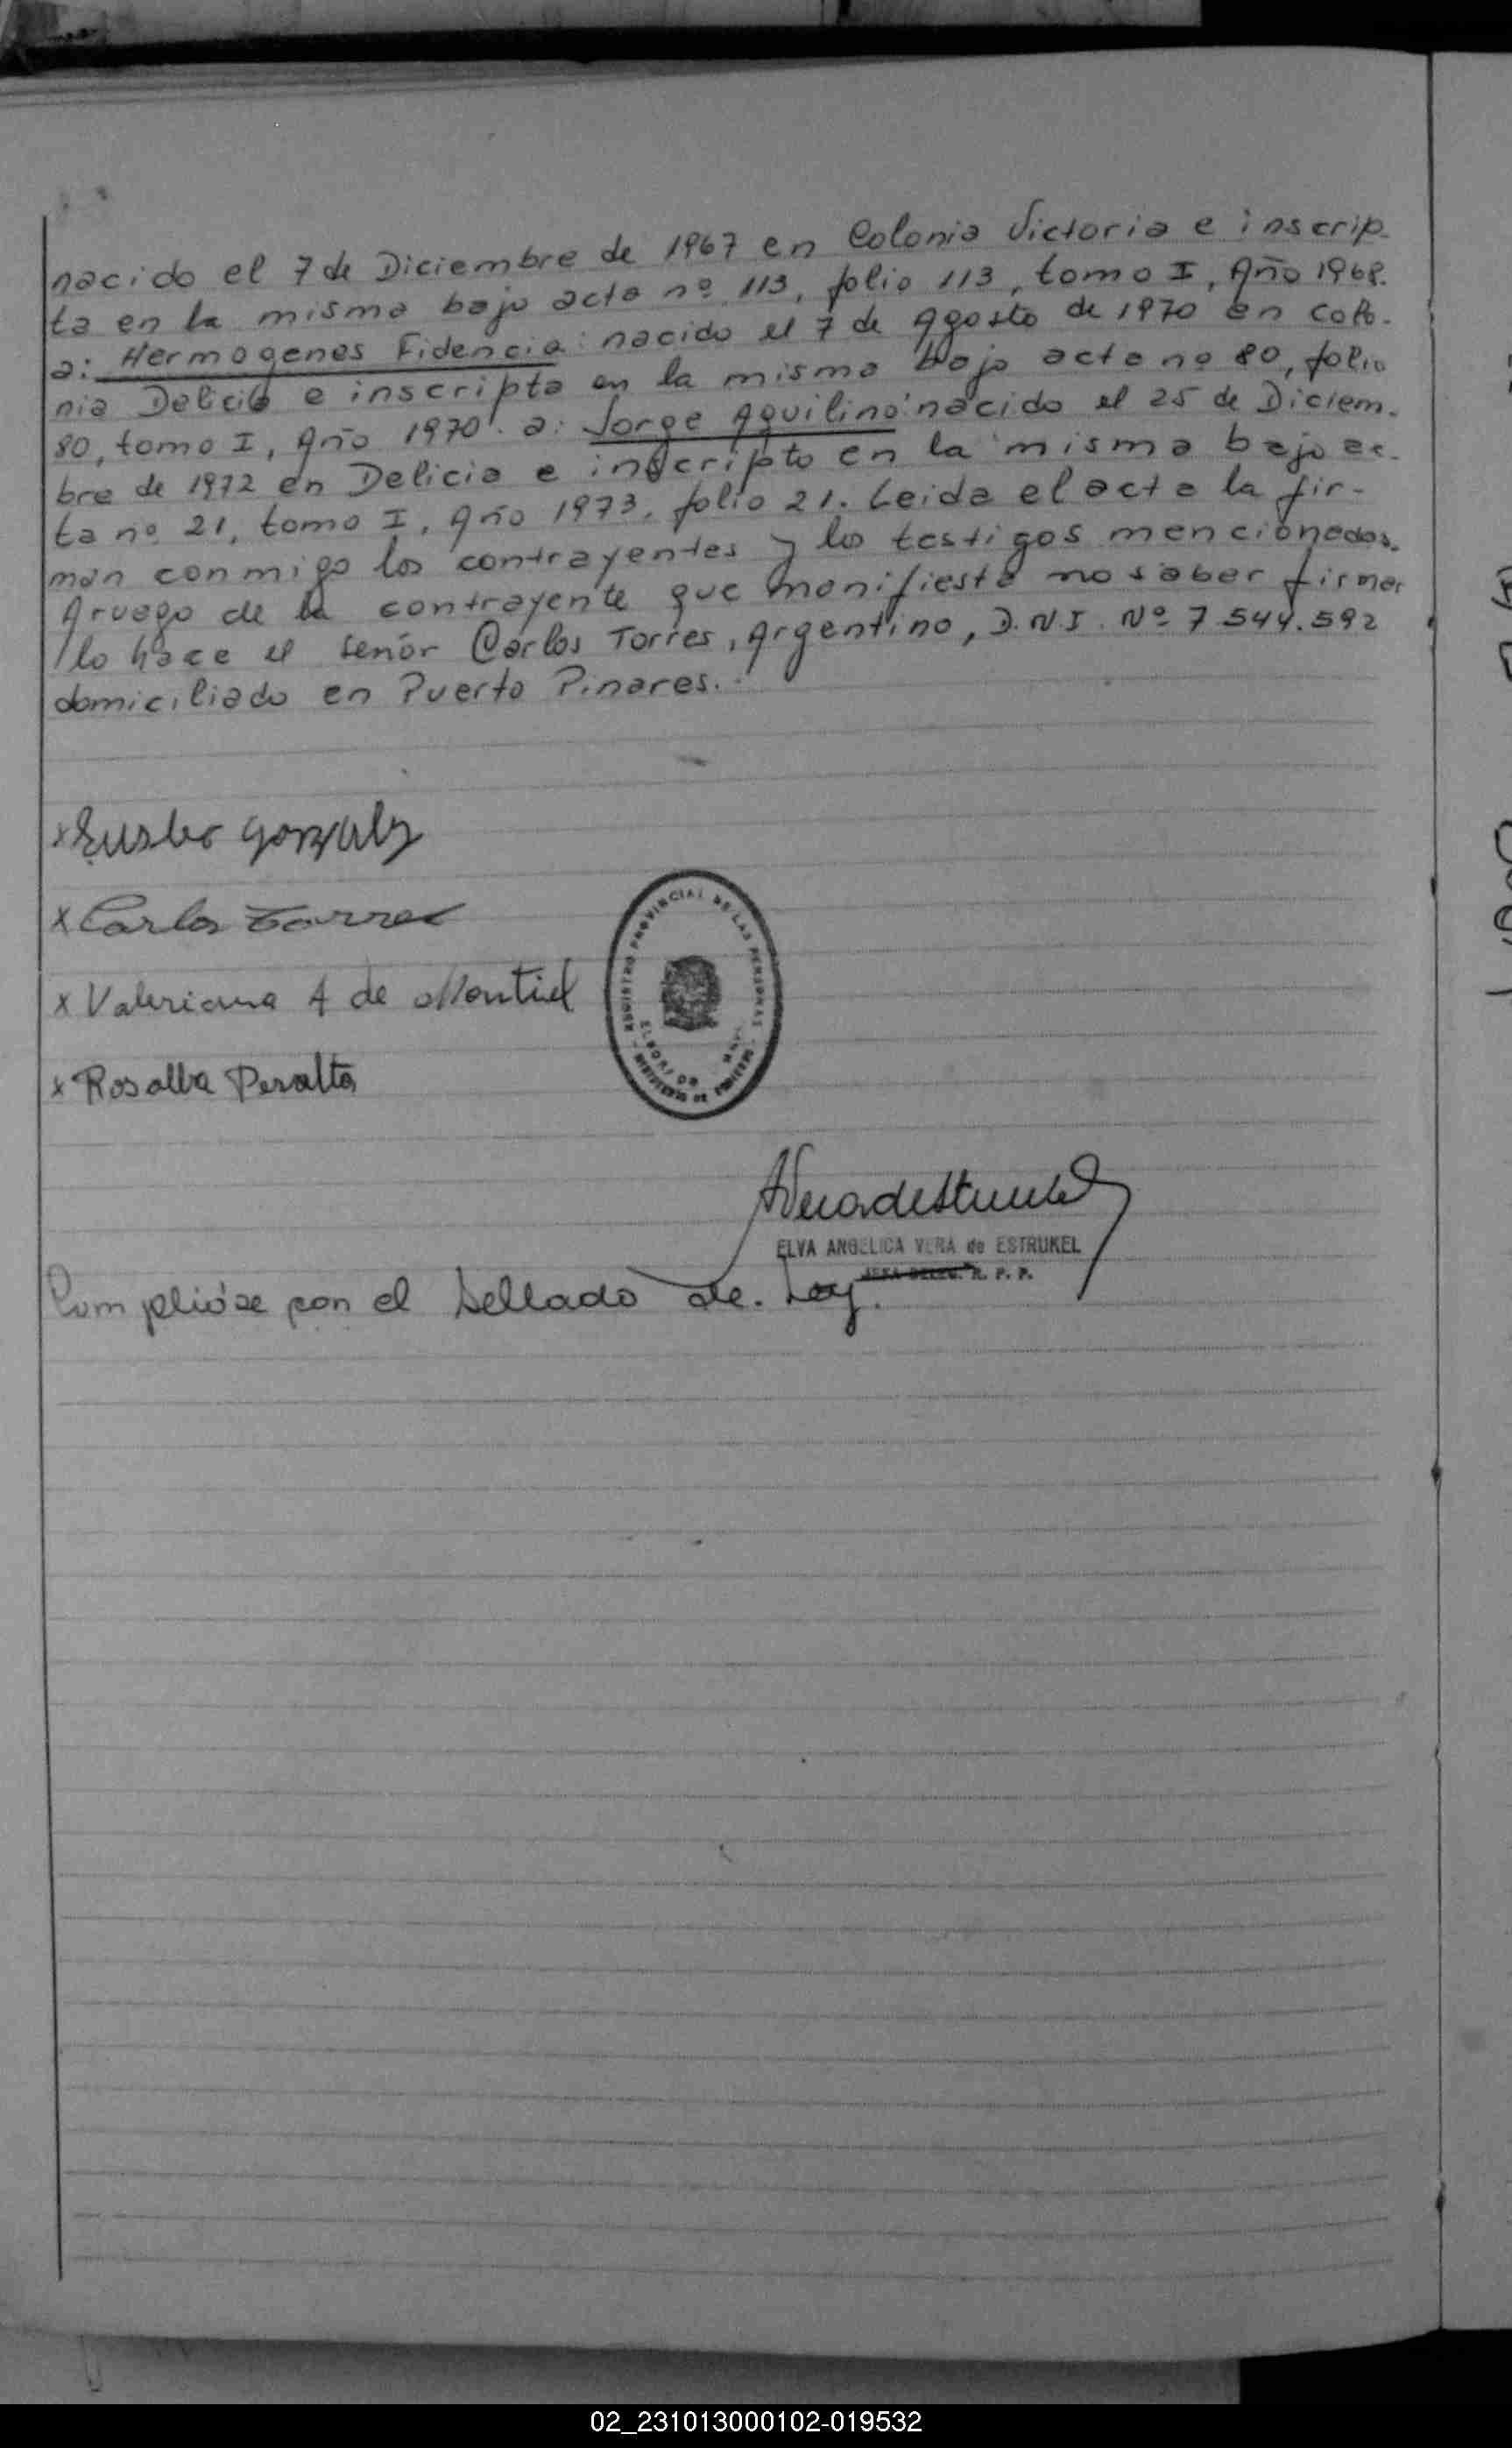 nacido el 7 de Diciembre de 1967 en Colonia Victoria e inscrip-
ta en la misma bajo acta nº 113, folio 113, tomo I, Año 1968.
a: Hermogenes Fidencia: nacido el 7 de Agosto de 1970 en Colo-
nia Delicia e inscripta en la misma bajo acta nº 80, folio
80, tomo I, Año 1970. a: Jorge Aquilino: nacido el 25 de Diciem-
bre de 1972 en Delicia e inscripto en la misma bajo ac-
ta nº 21, tomo I, Año 1973, folio 21. Leida el acta la fir-
man conmigo los contrayentes y los testigos mencionados.
Aruego de la contrayente que manifiesta no saber firmar
lo hace el señor Carlos Torres, Argentino, D.N.I. Nº 7.544.592
domiciliado en Puerto Pinares.
x Gonzalez
x Carlos Torres
x Valeriana A de Montiel
x Rosalba Peralta
REGISTRO PROVINCIAL DE LAS PERSONAS
ELDORADO
MINISTERIO DE GOBIERNO
AVeradeEstrukel
ELVA ANGELICA VERA de ESTRUKEL
JEFA DELEG. R. P. P.
Cumplióse con el Sellado de Ley.
02_231013000102-019532